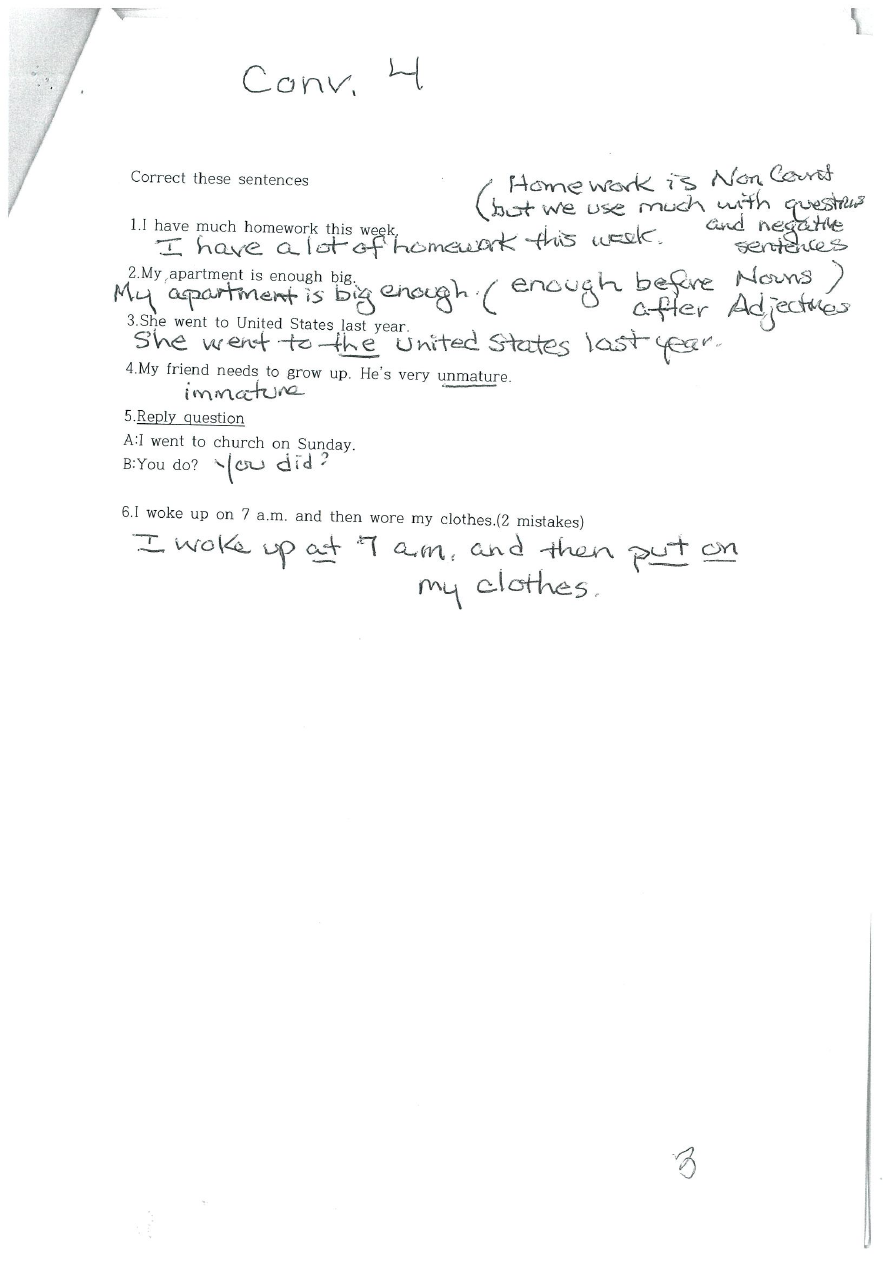 Conv. 4
Correct these sentences
( Homework is Non Count
(but we use much with questions
and negative
sentences
1.I have much homework this week.
I have a lot of homework this week.
2.My apartment is enough big.
My apartment is big enough. ( enough before Nouns )
after Adjectives
3.She went to United States last year.
She went to the United States last year.
4.My friend needs to grow up. He's very unmature.
immature
5.Reply question
A:I went to church on Sunday.
B:You do? You did?
6.I woke up on 7 a.m. and then wore my clothes.(2 mistakes)
I woke up at 7 a.m. and then put on
my clothes.
3